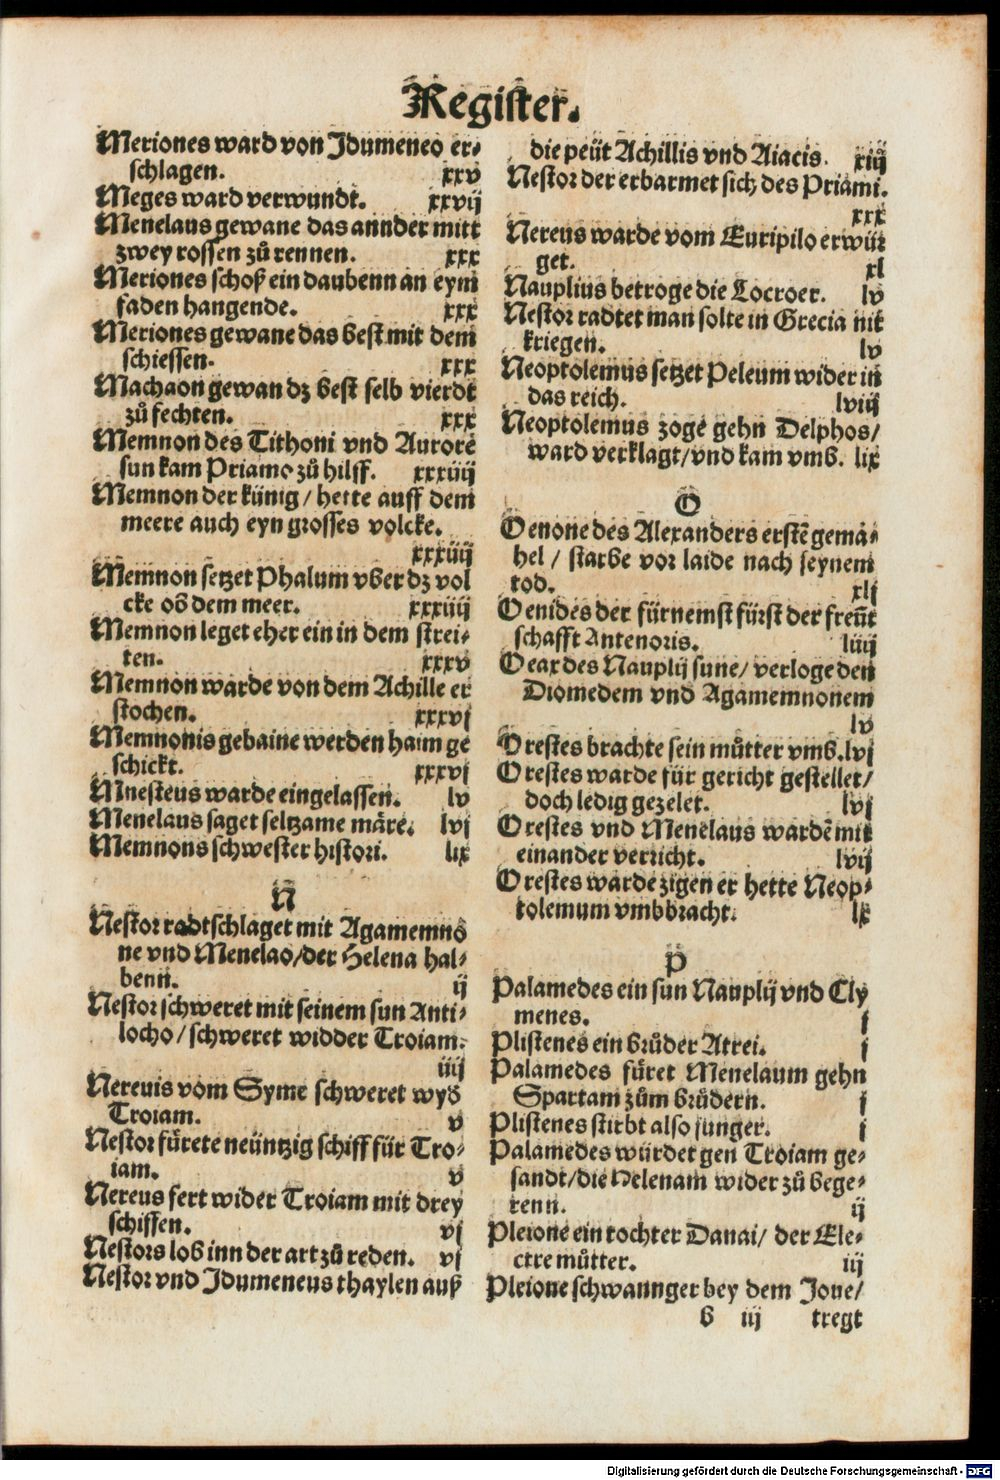 Register.
Meriones ward von Idumeneo er⸗
schlagen. xxv
Meges ward verwundt. xxvij
Menelaus gewane das annder mitt
zwey rossen zů rennen. xxx
Meriones schoß ein daubenn an eym
faden hangende. xxx
Meriones gewane das best mit dem
schiessen. xxx
Machaon gewan dz best selb vierdt
zů fechten. xxx
Memnon des Tithoni vnd Aurore
sun kam Priamo zů hilff. xxxiiij
Memnon der künig / hette auff dem
meere auch eyn grosses volcke.
xxxiiij
Memnon setzet Phalum vber dz vol
cke ob dem meer. xxxiiij
Memnon leget eher ein in dem strei⸗
ten. xxxv
Memnon warde von dem Achille er
stochen. xxxvj
Memnonis gebaine werden haim ge
schickt. xxxvj
Mnesteus warde eingelassen. lv
Menelaus saget seltzame märe. lvj
Memnons schwester histori. lix
N
Nestor radtschlaget mit Agamemno
ne vnd Menelao/der Helena hal⸗
benn. ij
Nestor schweret mit seinem sun Anti⸗
locho / schweret widder Troiam.
iiij
Nereuis vom Syme schweret wyd
Troiam. v
Nestor fürete neüntzig schiff für Tro⸗
iam. v
Nereus fert wider Troiam mit drey
schiffen. vj
Nestors lob inn der art zů reden. vj
Nestor vnd Idumeneus thaylen auß
die peüt Achillis vnd Aiacis. xiij
Nestor der erbarmet sich des Priami.
xxx
Nereus warde vom Euripilo erwür
get. xl
Nauplius betroge die Locroer. lv
Nestor radtet man solte in Grecia nit
kriegen. lv
Neoptolemus setzet Peleum wider in
das reich. lviij
Neoptolemus zoge gehn Delphos/
ward verklagt/vnd kam vmb. lix
O
Oenone des Alexanders erstē gemä⸗
hel / starbe vor laide nach seynem
tod. xlj
Oenides der fürnemst fürst der freüt
schafft Antenoris. liiij
Oeax des Nauplij sune/ verloge den
Diomedem vnd Agamemnonem
lv
Orestes brachte sein můtter vmb. lvj
Orestes warde für gericht gestellet/
doch ledig gezelet. lvj
Orestes vnd Menelaus wardē mit
einander verricht. lvij
Orestes warde zigen er hette Neop⸗
tolemum vmbbracht. lx
P
Palamedes ein sun Nauplij vnd Cly
menes. j
Plistenes ein brůder Atrei. j
Palamedes füret Menelaum gehn
Spartam zům brüdern. j
Plistenes stirbt also junger. j
Palamedes würdet gen Troiam ge⸗
sandt/die Helenam wider zů bege⸗
renn. ij
Pleione ein tochter Danai/ der Ele⸗
ctre můtter. iij
Pleione schwannger bey dem Joue/
b iij tregt
Digitalisierung gefördert durch die Deutsche Forschungsgemeinschaft - DFG